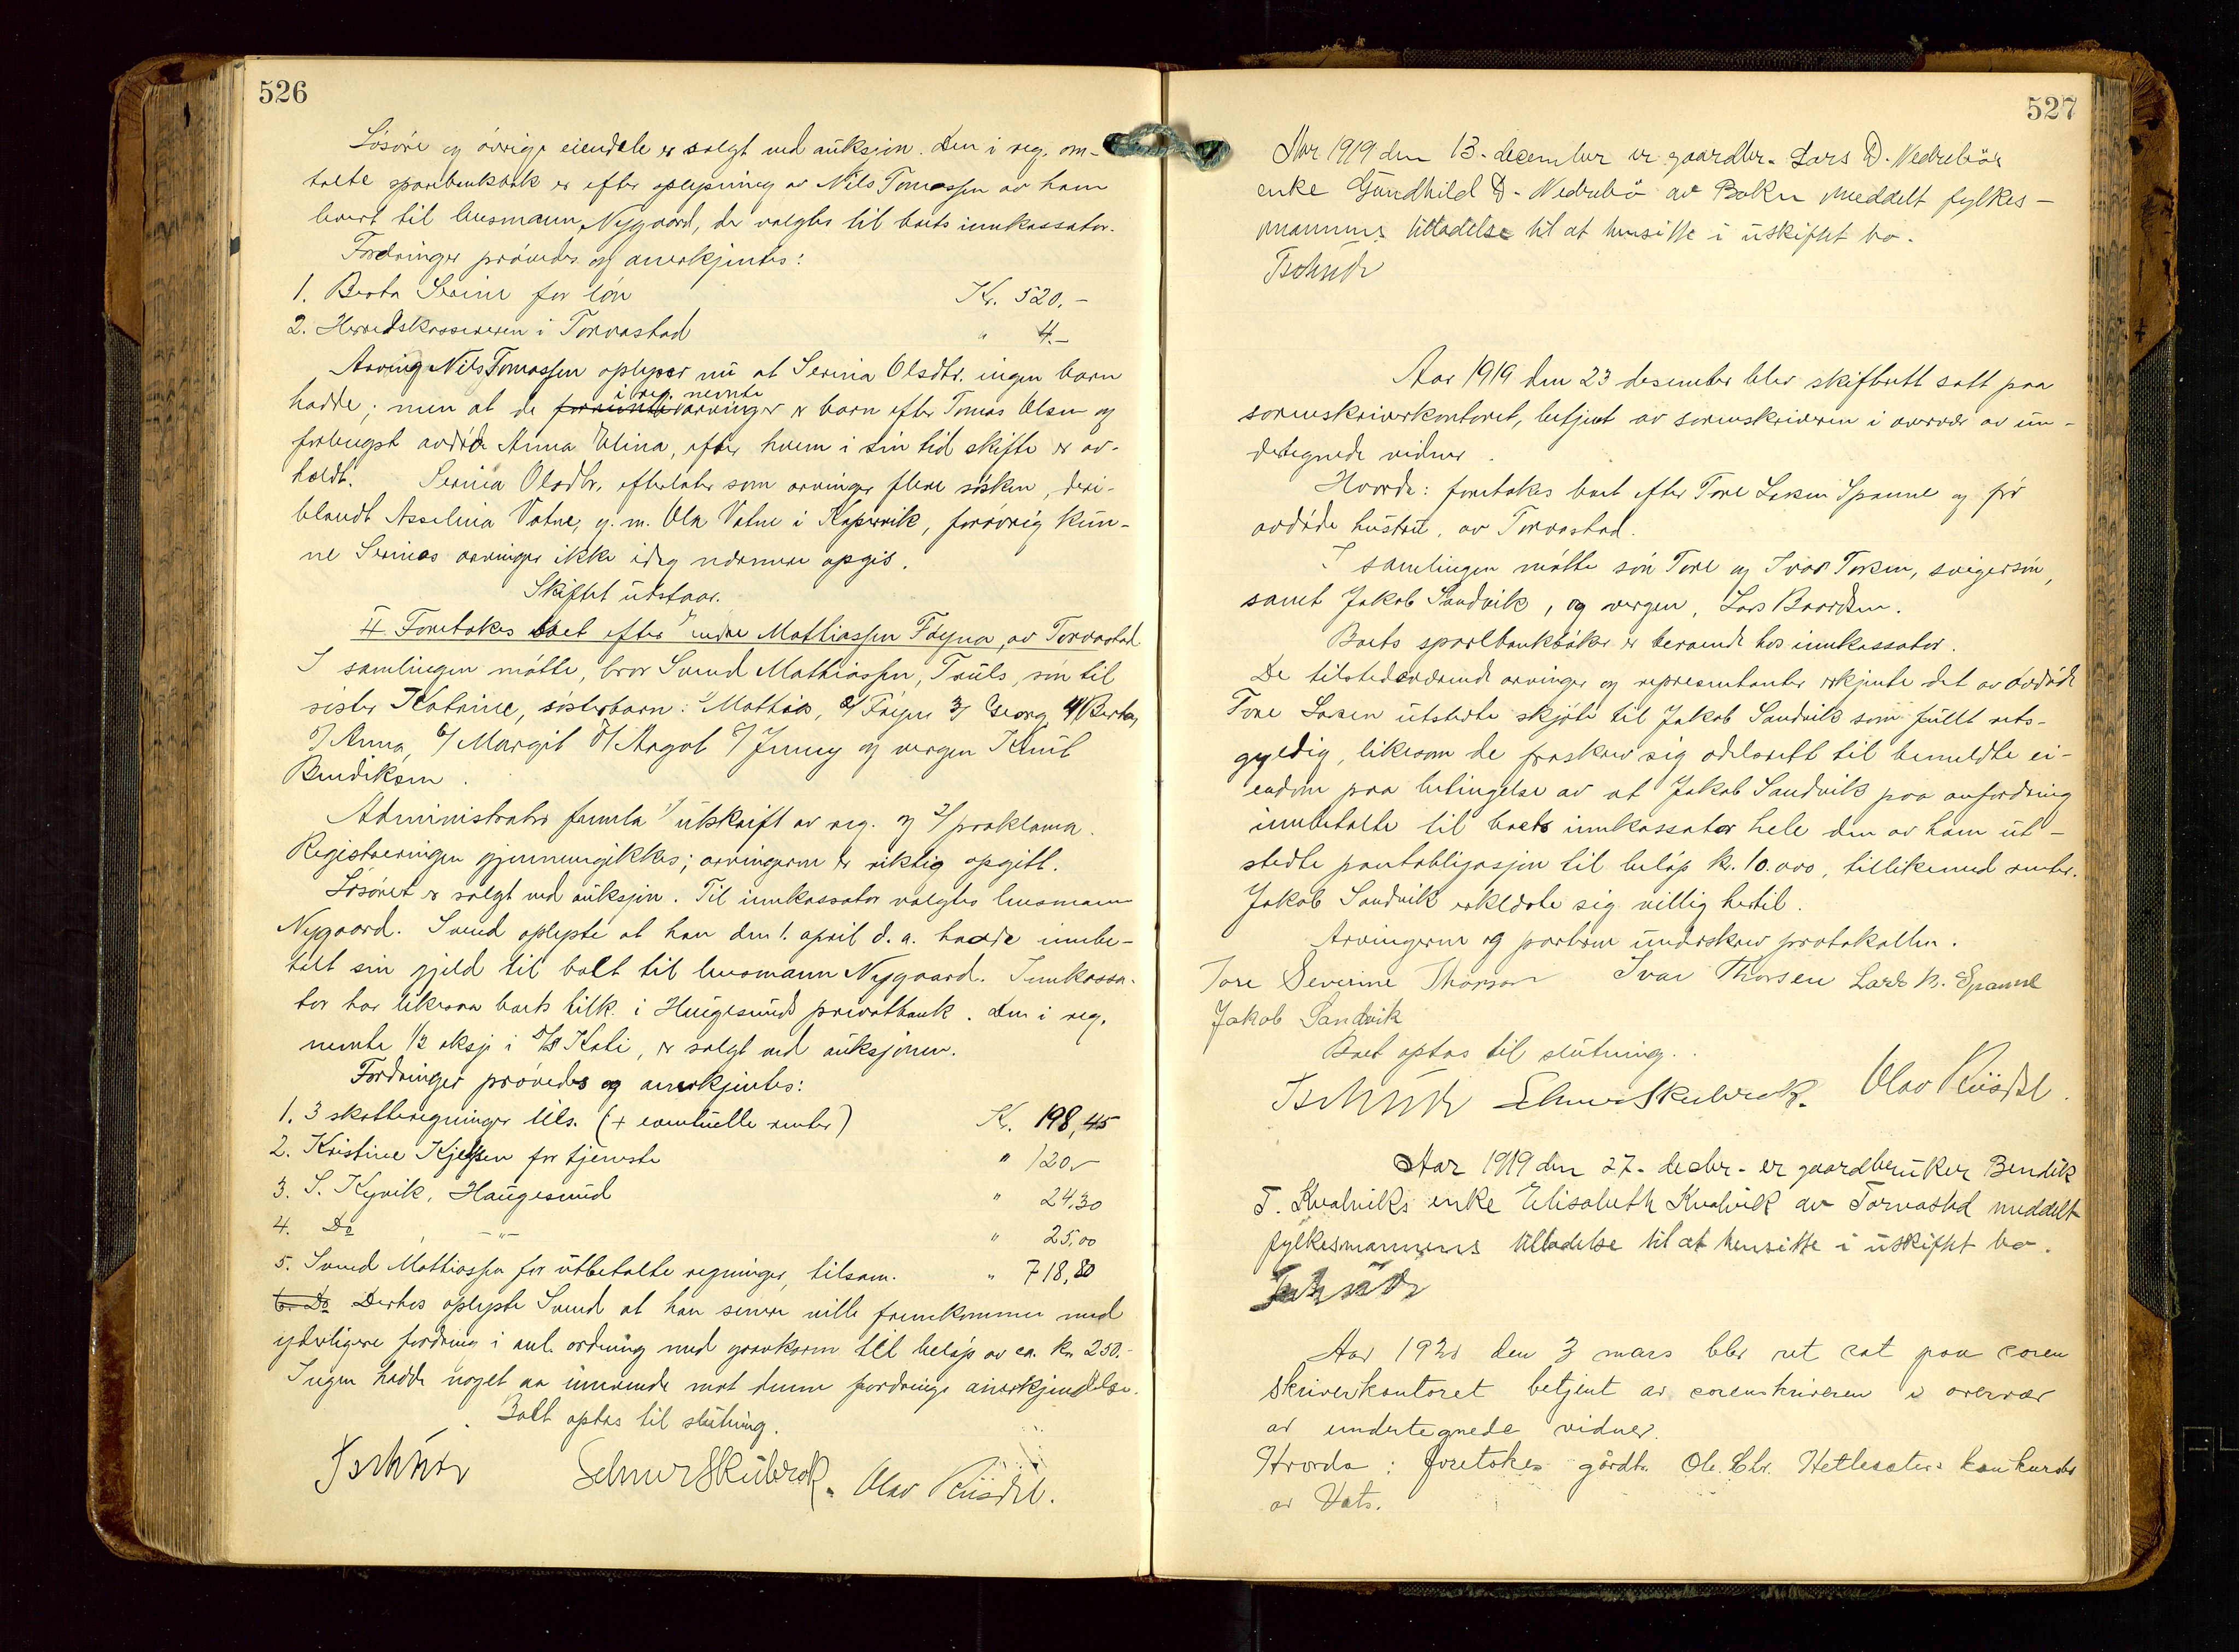 526
Lösöre og övrige eiendele er solgt ved auksion. Den i reg. om-
talte sparebankbok er efter oplysning av Nils Tomassen av ham
levert til lensmann Nygaard, der valgtes til boets innkassator.
Fordringer prövedes og anerkjentes:
1. Berta Serine for lön Kr. 520.-
2. Herredskassereren i Torvastad " 4.-
Arving Nils Tomassen oplyser nu at Serina Olsdtr. ingen barn
i reg. nemte
hadde; men at de arvinger er barn efter Tomas Olsen og
forlengst avdöde Anna Elina, efter hvem i sin tid skifte er av-
holdt. Serina Olsdtr. efterlater som arvinger flere sösken, deri-
blandt Asselina Vatne, g. m. Ola Vatne i Kopervik, forövrig kun-
ne Serinas arvinger ikke idag nærmere opgis.
Skiftet utstaar.
4. Foretokes boet efter Endre Mathiassen Föyna, av Torvastad
I samlingen mötte, bror Svend Mathiassen, Truls, sön til
söster Katrine, sösterbarn: 1/ Mathias, 2/ Föyen 3/ Georg 4/ Berta,
5/ Anna, 6/ Margit 7/ Aagot 8/ Jenny og vergen Knut
Bendiksen.
Administrator femla 1/ utskrift av reg. og 2/ proklama.
Registreringen gjennemgikkes; arvingerne er riktig opgitt.
Lösöret er solgt ved auksjon. Til innkassator valgtes lensmann
Nygaard. Svend oplyste at han den 1. april d. a. hadde innbe-
talt sin gjeld til boet til lensmann Nygaard. Innkassa-
tor har likesaa boets tilk. i Haugesunds privatbank. Den i reg.
nemte 1/2 aksje i D/S Kali, er solgt ved auksjonen.
Fordringer prövedes og anerkjentes:
1. 3 skatteregninger tils. (+ eventuelle renter) Kr. 198,45
2. Kristine Kjellsen for tjeneste " 120,-
3. S. Kyvik, Haugesund " 24,30
4. Do , -"- " 25,00
5. Svend Mathiassen for utbetalte regninger, tilsam. " 718,80
Derhos oplyste Svend at han senere ville fremkomme med
yderligere fordring i anl. ordning med gravkarm til beløp av ca. kr. 250.-
Ingen hadde noget aa innvende mot denne fordrings anerkjendelse.
Boet optas til slutning.
Tschudi Selmer Skulerok. Olav Riisdal.
527
Aar 1919 den 13. december er gaardbr. Lars D. Nedrebös
enke Gundhild D. Nedrebö av Bokn meddelt fylkes-
mannens tilladelse til at hensitte i uskiftet bo.
Tschudi
Aar 1919 den 23 desember blev skifterett satt paa
sorenskriverkontoret, betjent av sorenskriveren i overvær av un-
detegnede vidner.
Hvorda: foretokes boet efter Tore Larsen Spanne og før
avdöde hustru, av Torvastad.
I samlingen mötte sön Tore og Ivar Torsen, svigersön,
samt Jakob Sandvik, og vergen, Lars Baardsen.
Boets sparebankböker er beroende hos innkassator.
De tilstedeværende arvinger og representanter erkjente det av avdöde
Tore Larsen utstedte skjöte til Jakob Sandvik som fullt rets-
gyldig, likesom de fraskrev sig odelsrett til bemeldte ei-
endom paa betingelse av at Jakob Sandvik paa anfordring
innbetalte til boets innkassator hele den av ham ut-
stedte pantobligasjon til beløp kr. 10.000, tillikemed renter.
Jakob Sandvik erklærte sig villig hertil.
Arvingerne og parterne underskrev protokollen.
Tore Severine Thorsen Ivar Thorsen Lars B. Spanne
Jakob Sandvik
Boet optas til slutning.
Tschudi Selmer Skulerok. Olav Riisdal.
Aar 1919 den 27. decbr. er gaardbruker Bendik
T. Kvalviks enke Elisabeth Kvalvik av Torvastad meddelt
fylkesmannens tilladelse til at hensitte i uskiftet bo.
Tschudi
Aar 1920 den 3 mars blev ret sat paa soren
skriverkontoret betjent av sorenskriveren i overvær
av undertegnede vidner.
Hvorda: foretokes gårdbr. Ole Chr. Hetlesæters konkursbo
av Vats.